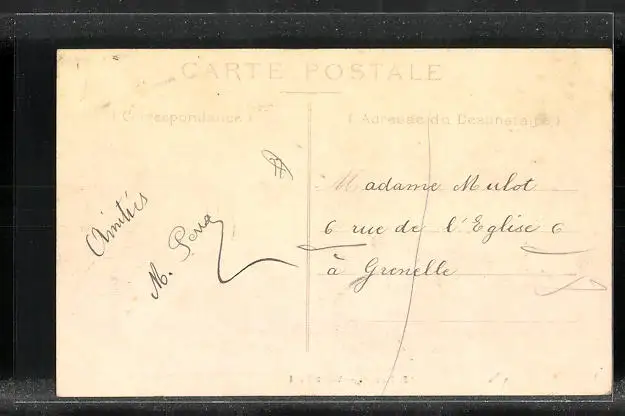 CARTE POSTALE
(Correspondance)
(Adresse du Destinataire)
Amitiés
M.
Madame Mulot
6 rue de l'Eglise 6
à Grenelle